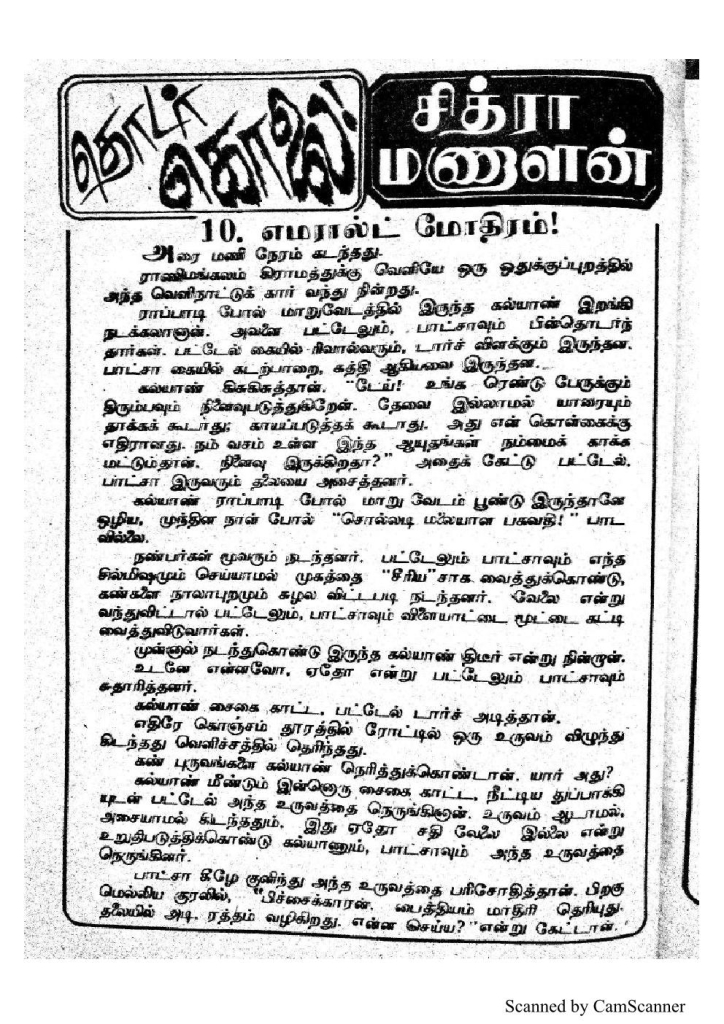 தொடர்
கொலை!
சித்ரா
மணாளன்
10. எமரால்ட் மோதிரம்!
அரை மணி நேரம் கடந்தது.
ராணிமங்கலம் கிராமத்துக்கு வெளியே ஒரு ஒதுக்குப்புறத்தில்
அந்த வெளிநாட்டுக் கார் வந்து நின்றது.
ராப்பாடி போல் மாறுவேடத்தில் இருந்த கல்யாண் இறங்கி
நடக்கலானான். அவனை பட்டேலும், பாட்சாவும் பின்தொடர்ந்
தார்கள். பட்டேல் கையில் ரிவால்வரும், டார்ச் விளக்கும் இருந்தன.
பாட்சா கையில் கடற்பாறை, கத்தி ஆகியவை இருந்தன.
கல்யாண் கிசுகிசுத்தான். "டேய்! உங்க ரெண்டு பேருக்கும்
திரும்பவும் நினைவுபடுத்துகிறேன். தேவை இல்லாமல் யாரையும்
தாக்கக் கூடாது; காயப்படுத்தக் கூடாது. அது என் கொள்கைக்கு
எதிரானது. நம் வசம் உள்ள இந்த ஆயுதங்கள் நம்மைக் காக்க
மட்டும்தான். நினைவு இருக்கிறதா?" அதைக் கேட்டு பட்டேல்,
பாட்சா இருவரும் தலையை அசைத்தனர்.
கல்யாண் ராப்பாடி போல் மாறு வேடம் பூண்டு இருந்தானே
ஒழிய, முந்தின நாள் போல் "சொல்லடி மலையாள பகவதி!" பாட
வில்லை.
நண்பர்கள் மூவரும் நடந்தனர். பட்டேலும் பாட்சாவும் எந்த
சில்மிஷமும் செய்யாமல் முகத்தை "சீரிய"சாக வைத்துக்கொண்டு,
கண்களை நாலாபுறமும் சுழல விட்டபடி நடந்தனர். வேலை என்று
வந்துவிட்டால் பட்டேலும், பாட்சாவும் விளையாட்டை மூட்டை கட்டி
வைத்துவிடுவார்கள்.
முன்னால் நடந்துகொண்டு இருந்த கல்யாண் திடீர் என்று நின்றான்.
உடனே என்னவோ, ஏதோ என்று பட்டேலும் பாட்சாவும்
சுதாரித்தனர்.
கல்யாண் சைகை காட்ட, பட்டேல் டார்ச் அடித்தான்.
எதிரே கொஞ்சம் தூரத்தில் ரோட்டில் ஒரு உருவம் விழுந்து
கிடந்தது வெளிச்சத்தில் தெரிந்தது.
கண் புருவங்களை கல்யாண் நெரித்துக்கொண்டான். யார் அது?
கல்யாண் மீண்டும் இன்னொரு சைகை காட்ட, நீட்டிய துப்பாக்கி
யுடன் பட்டேல் அந்த உருவத்தை நெருங்கினான். உருவம் ஆடாமல்,
அசையாமல் கிடந்ததும், இது ஏதோ சதி வேலை இல்லை என்று
உறுதிபடுத்திக்கொண்டு கல்யாணும், பாட்சாவும் அந்த உருவத்தை
நெருங்கினர்.
பாட்சா கீழே குனிந்து அந்த உருவத்தை பரிசோதித்தான். பிறகு
மெல்லிய குரலில், "பிச்சைக்காரன். பைத்தியம் மாதிரி தெரியுது.
தலையில் அடி, ரத்தம் வழிகிறது. என்ன செய்ய?" என்று கேட்டான்.
Scanned by CamScanner